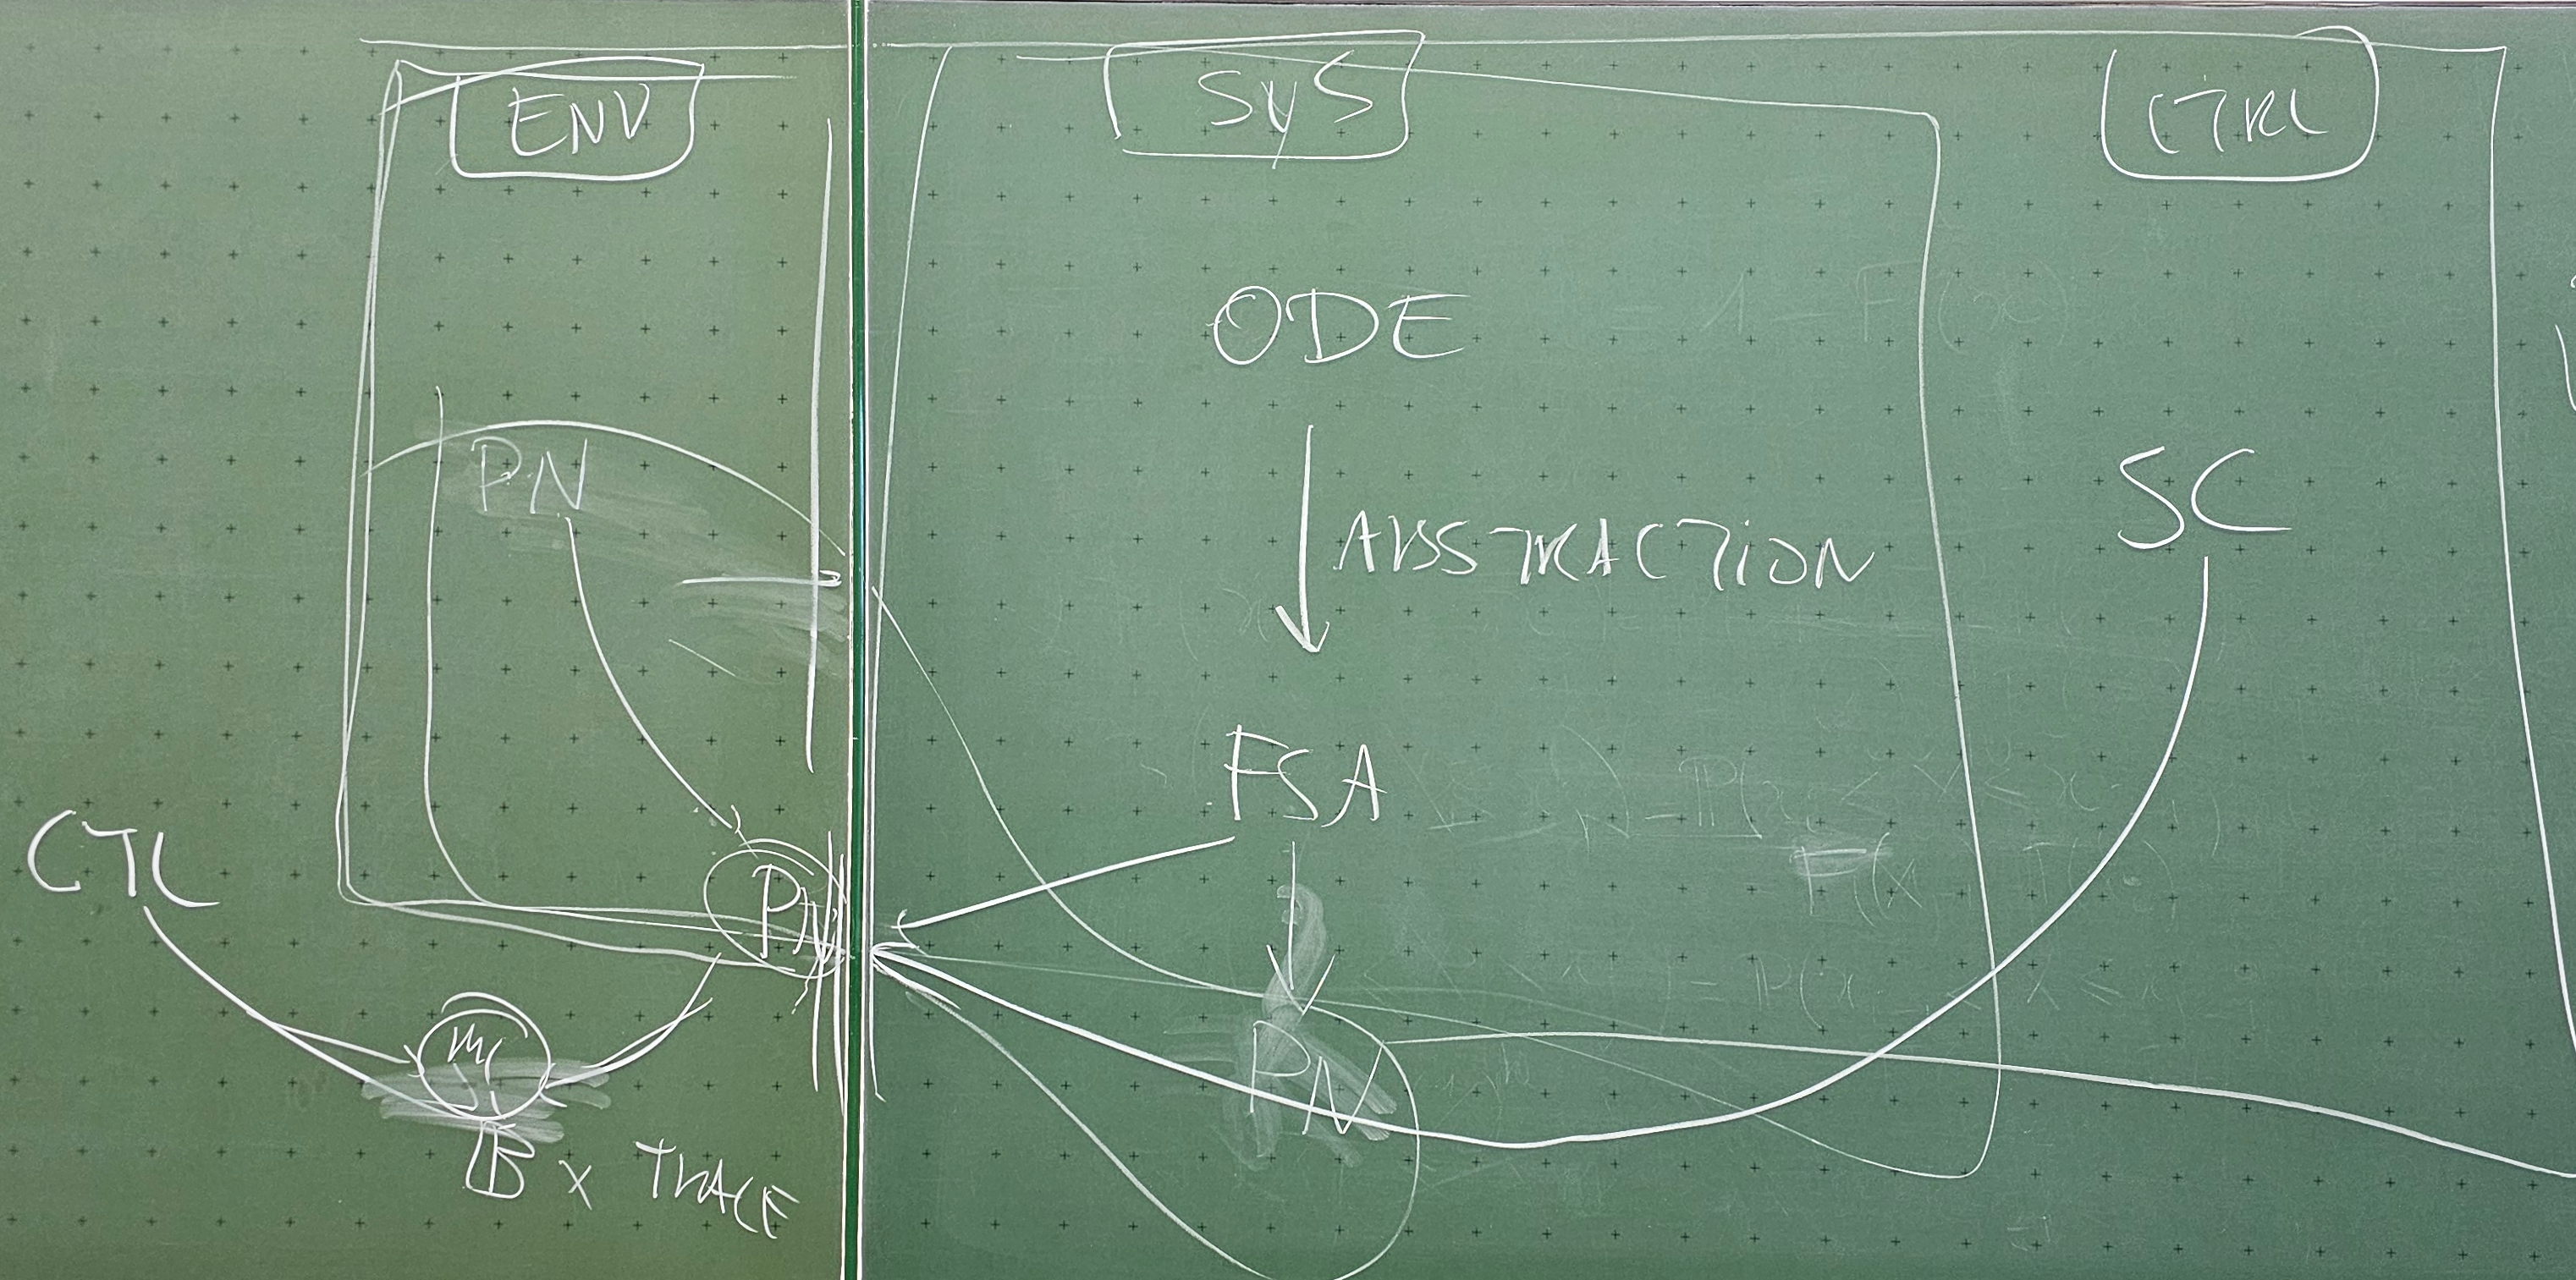 ENV
SYS
CTRL
ODE
PN
SC
ABSTRACTION
FSA
CTL
PN
MC
PN
B x TRACE